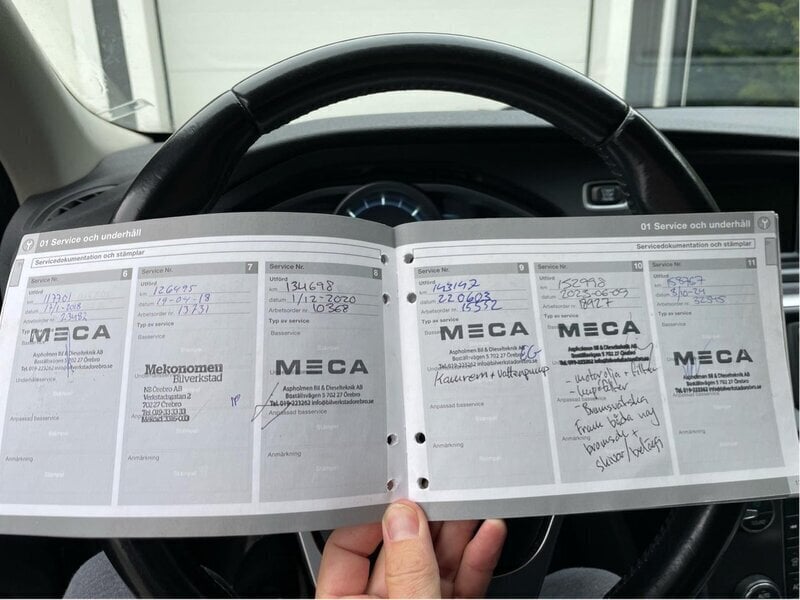 01 Service och underhåll
Servicedokumentation och stämplar
Service Nr. 6
Utförd
km 117701
datum
Arbetsorder nr 23482
Typ av service
MECA
Aspholmen Bil & Dieselteknik AB
Båställsvägen 5 702 27 Örebro
Tel. 019-233262 info@bilverkstadorebro.se
Underhållsservice
Anpassad basservice
Anmärkning
Stämpel
Service Nr. 7
Utförd
km 126495
datum 19-04-18
Arbetsorder nr 13731
Typ av service
Basservice
Mekonomen
Bilverkstad
NS Örebro AB
Verkstadsgatan 2
702 27 Örebro
Tel. 019-33 33 33
Anpassad basservice
Anmärkning
Stämpel
Service Nr. 8
Utförd
km 134698
datum 1/12-2020
Arbetsorder nr 10368
Typ av service
Basservice
MECA
Aspholmen Bil & Dieselteknik AB
Båställsvägen 5 702 27 Örebro
Tel. 019-233262 info@bilverkstadorebro.se
Anpassad basservice
Anmärkning
Stämpel
01 Service och underhåll
Servicedokumentation och stämplar
Service Nr. 9
Utförd
km 143142
datum 220603
Arbetsorder nr 15552
Typ av service
Basservice
MECA
Aspholmen Bil & Dieselteknik AB
Båställsvägen 5 702 27 Örebro
Tel. 019-233262 info@bilverkstadorebro.se
Kamrem + Vattenpump
Anpassad basservice
Anmärkning
Service Nr. 10
Utförd
km 152998
datum 2023-06-09
Arbetsorder nr 18927
Typ av service
MECA
Aspholmen Bil & Dieselteknik AB
Båställsvägen 5 702 27 Örebro
Tel. 019-233262 info@bilverkstadorebro.se
- motorolja + filter
- kupéfilter
- Bromsvätska
Fram båda nya
bromsok +
skivor/belägg
Anmärkning
Service Nr. 11
Utförd
km
datum
Arbetsorder nr 32545
Typ av service
Basservice
MECA
Aspholmen Bil & Dieselteknik AB
Båställsvägen 5 702 27 Örebro
Tel. 019-233262 info@bilverkstadorebro.se
Anpassad basservice
Anmärkning